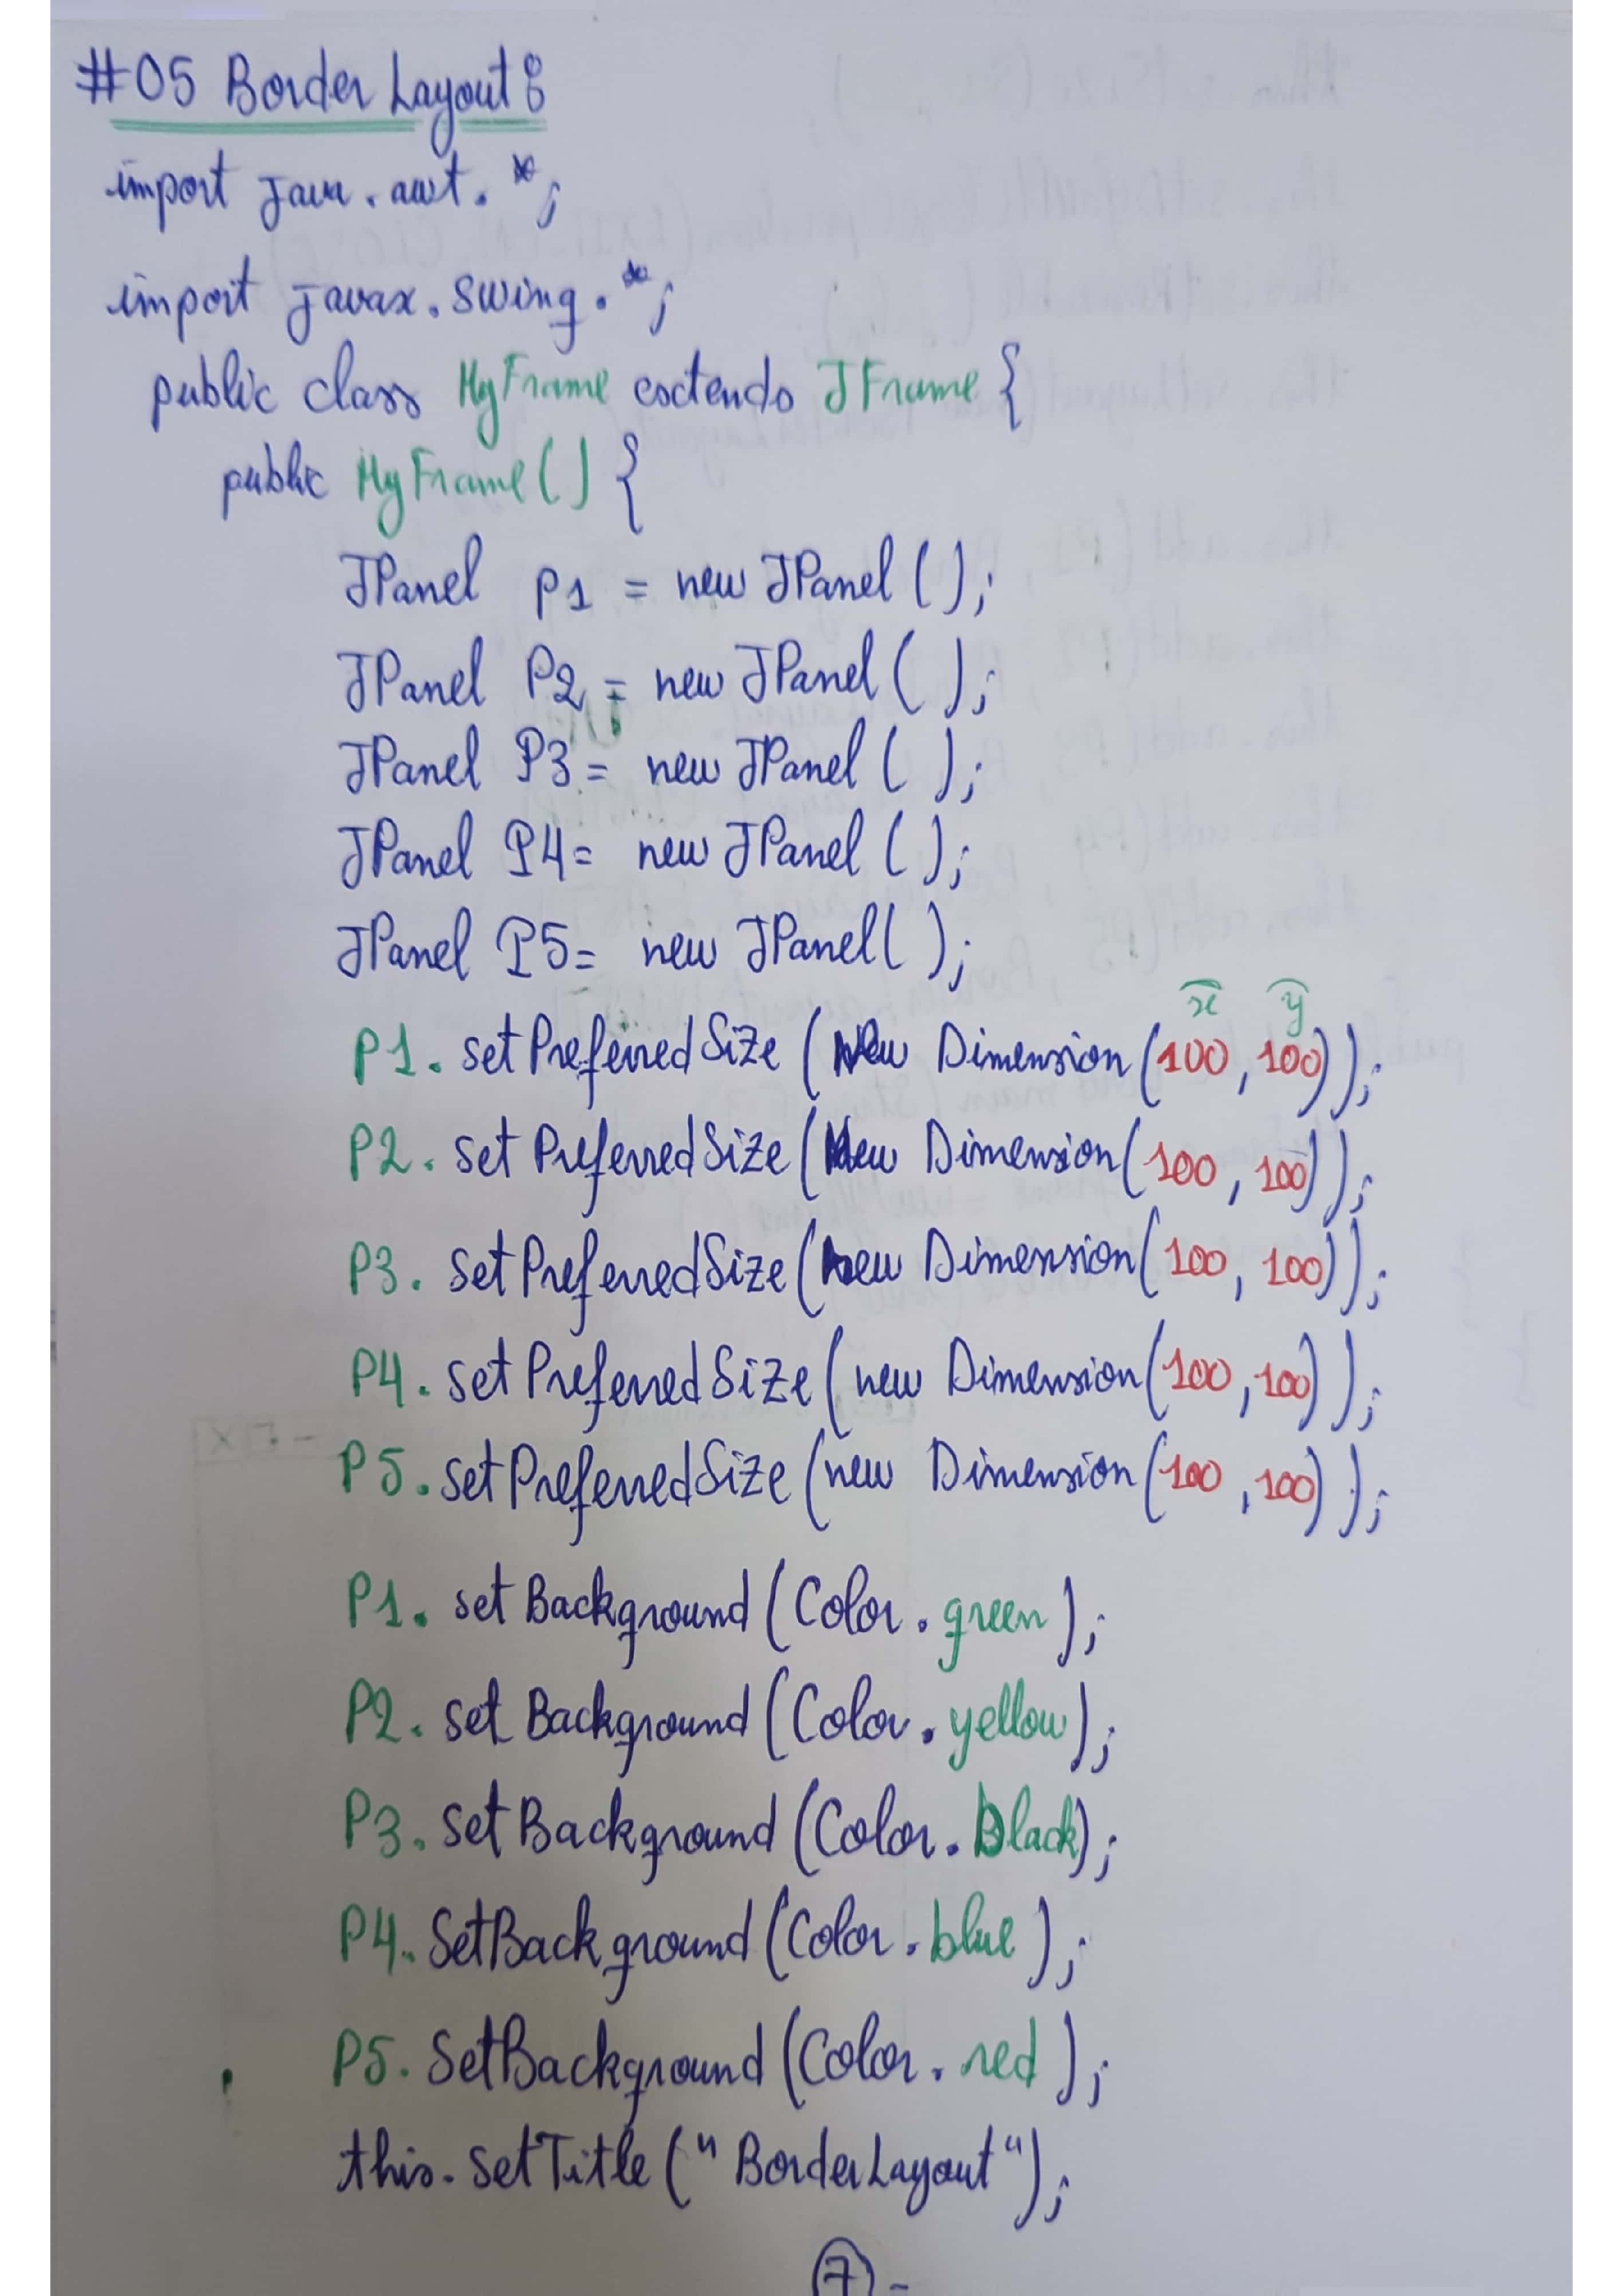 #05 Border Layout :
import java.awt.*;
import javax.swing.*;
public class MyFrame extends JFrame {
public MyFrame() {
JPanel p1 = new JPanel ();
JPanel P2 = new JPanel ( );
JPanel P3 = new JPanel ( );
JPanel P4 = new JPanel ( );
JPanel P5 = new JPanel ( );
x y
P1. setPreferredSize (new Dimension (100, 100));
P2. set PreferredSize (new Dimension (100, 100));
P3. set PreferredSize (new Dimension (100, 100));
P4. set PreferredSize (new Dimension (100, 100));
P5. setPreferredSize (new Dimension (100, 100));
P1. set Background (Color. green );
P2. set Background (Color. yellow);
P3. set Background (Color. black);
P4. SetBackground (Color. blue );
P5. SetBackground (Color. red );
this. setTitle (" BorderLayout ");
7